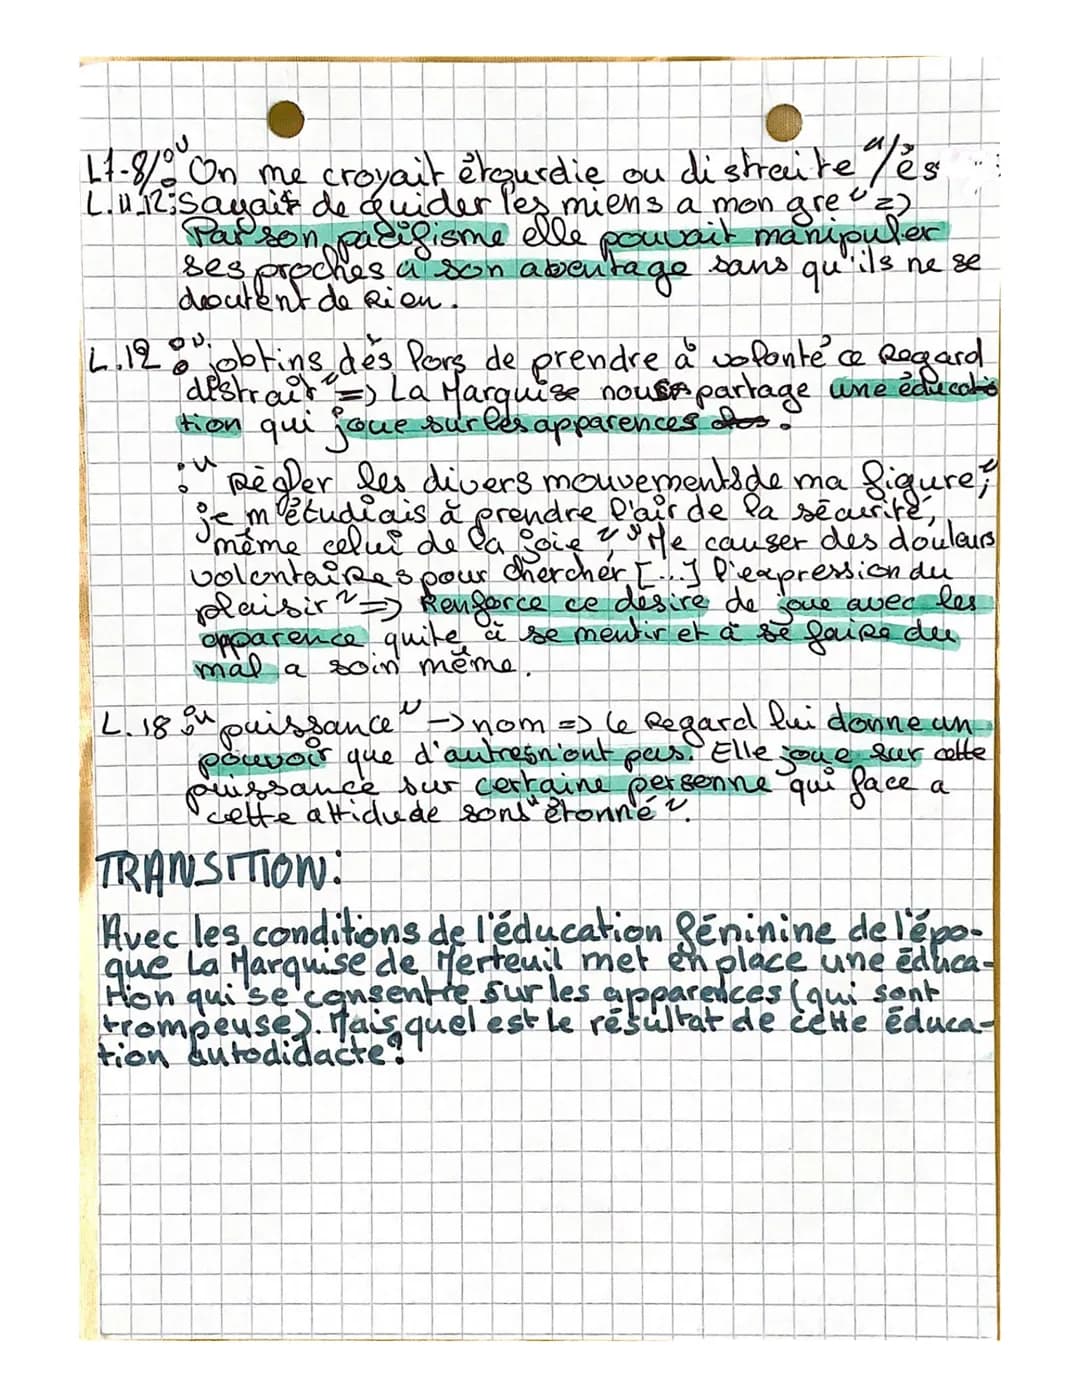 L7-8/: "On me croyait étourdie ou distraite"/ès
L.11.12: Sayait de guider les miens a mon gre" =>
Par son pacifisme elle pouvait manipuler
ses proches a son aventage sans qu'ils ne se
doutent de Rien.
L.12 : "j'obtins dès lors de prendre à volonté ce Regard
distrait" => La Marquise nous partage une éducati
tion qui joue sur les apparences.
: "Règler les divers mouvements de ma figure";
je m'étudiais à prendre l'air de la sécurité,
même celui de la joie", "Me causer des douleurs
volontaires pour chercher [...] l'expression du
plaisir" => Renforce ce desire de joue avec les
apparence quite à se mentir et à se faire du
mal a soin même.
L.18 : "puissance" -> nom => le Regard lui donne un
pouvoir que d'autres n'ont pas. Elle joue sur cette
puissance sur certaine personne qui face a
cette attidude sont "étonné".
TRANSITION:
Avec les conditions de l'éducation féninine de l'épo-
que La Marquise de Merteuil met en place une éduca-
tion qui se consentre sur les apparences (qui sont
trompeuse). Mais quel est le résultat de cette éduca-
tion autodidacte?